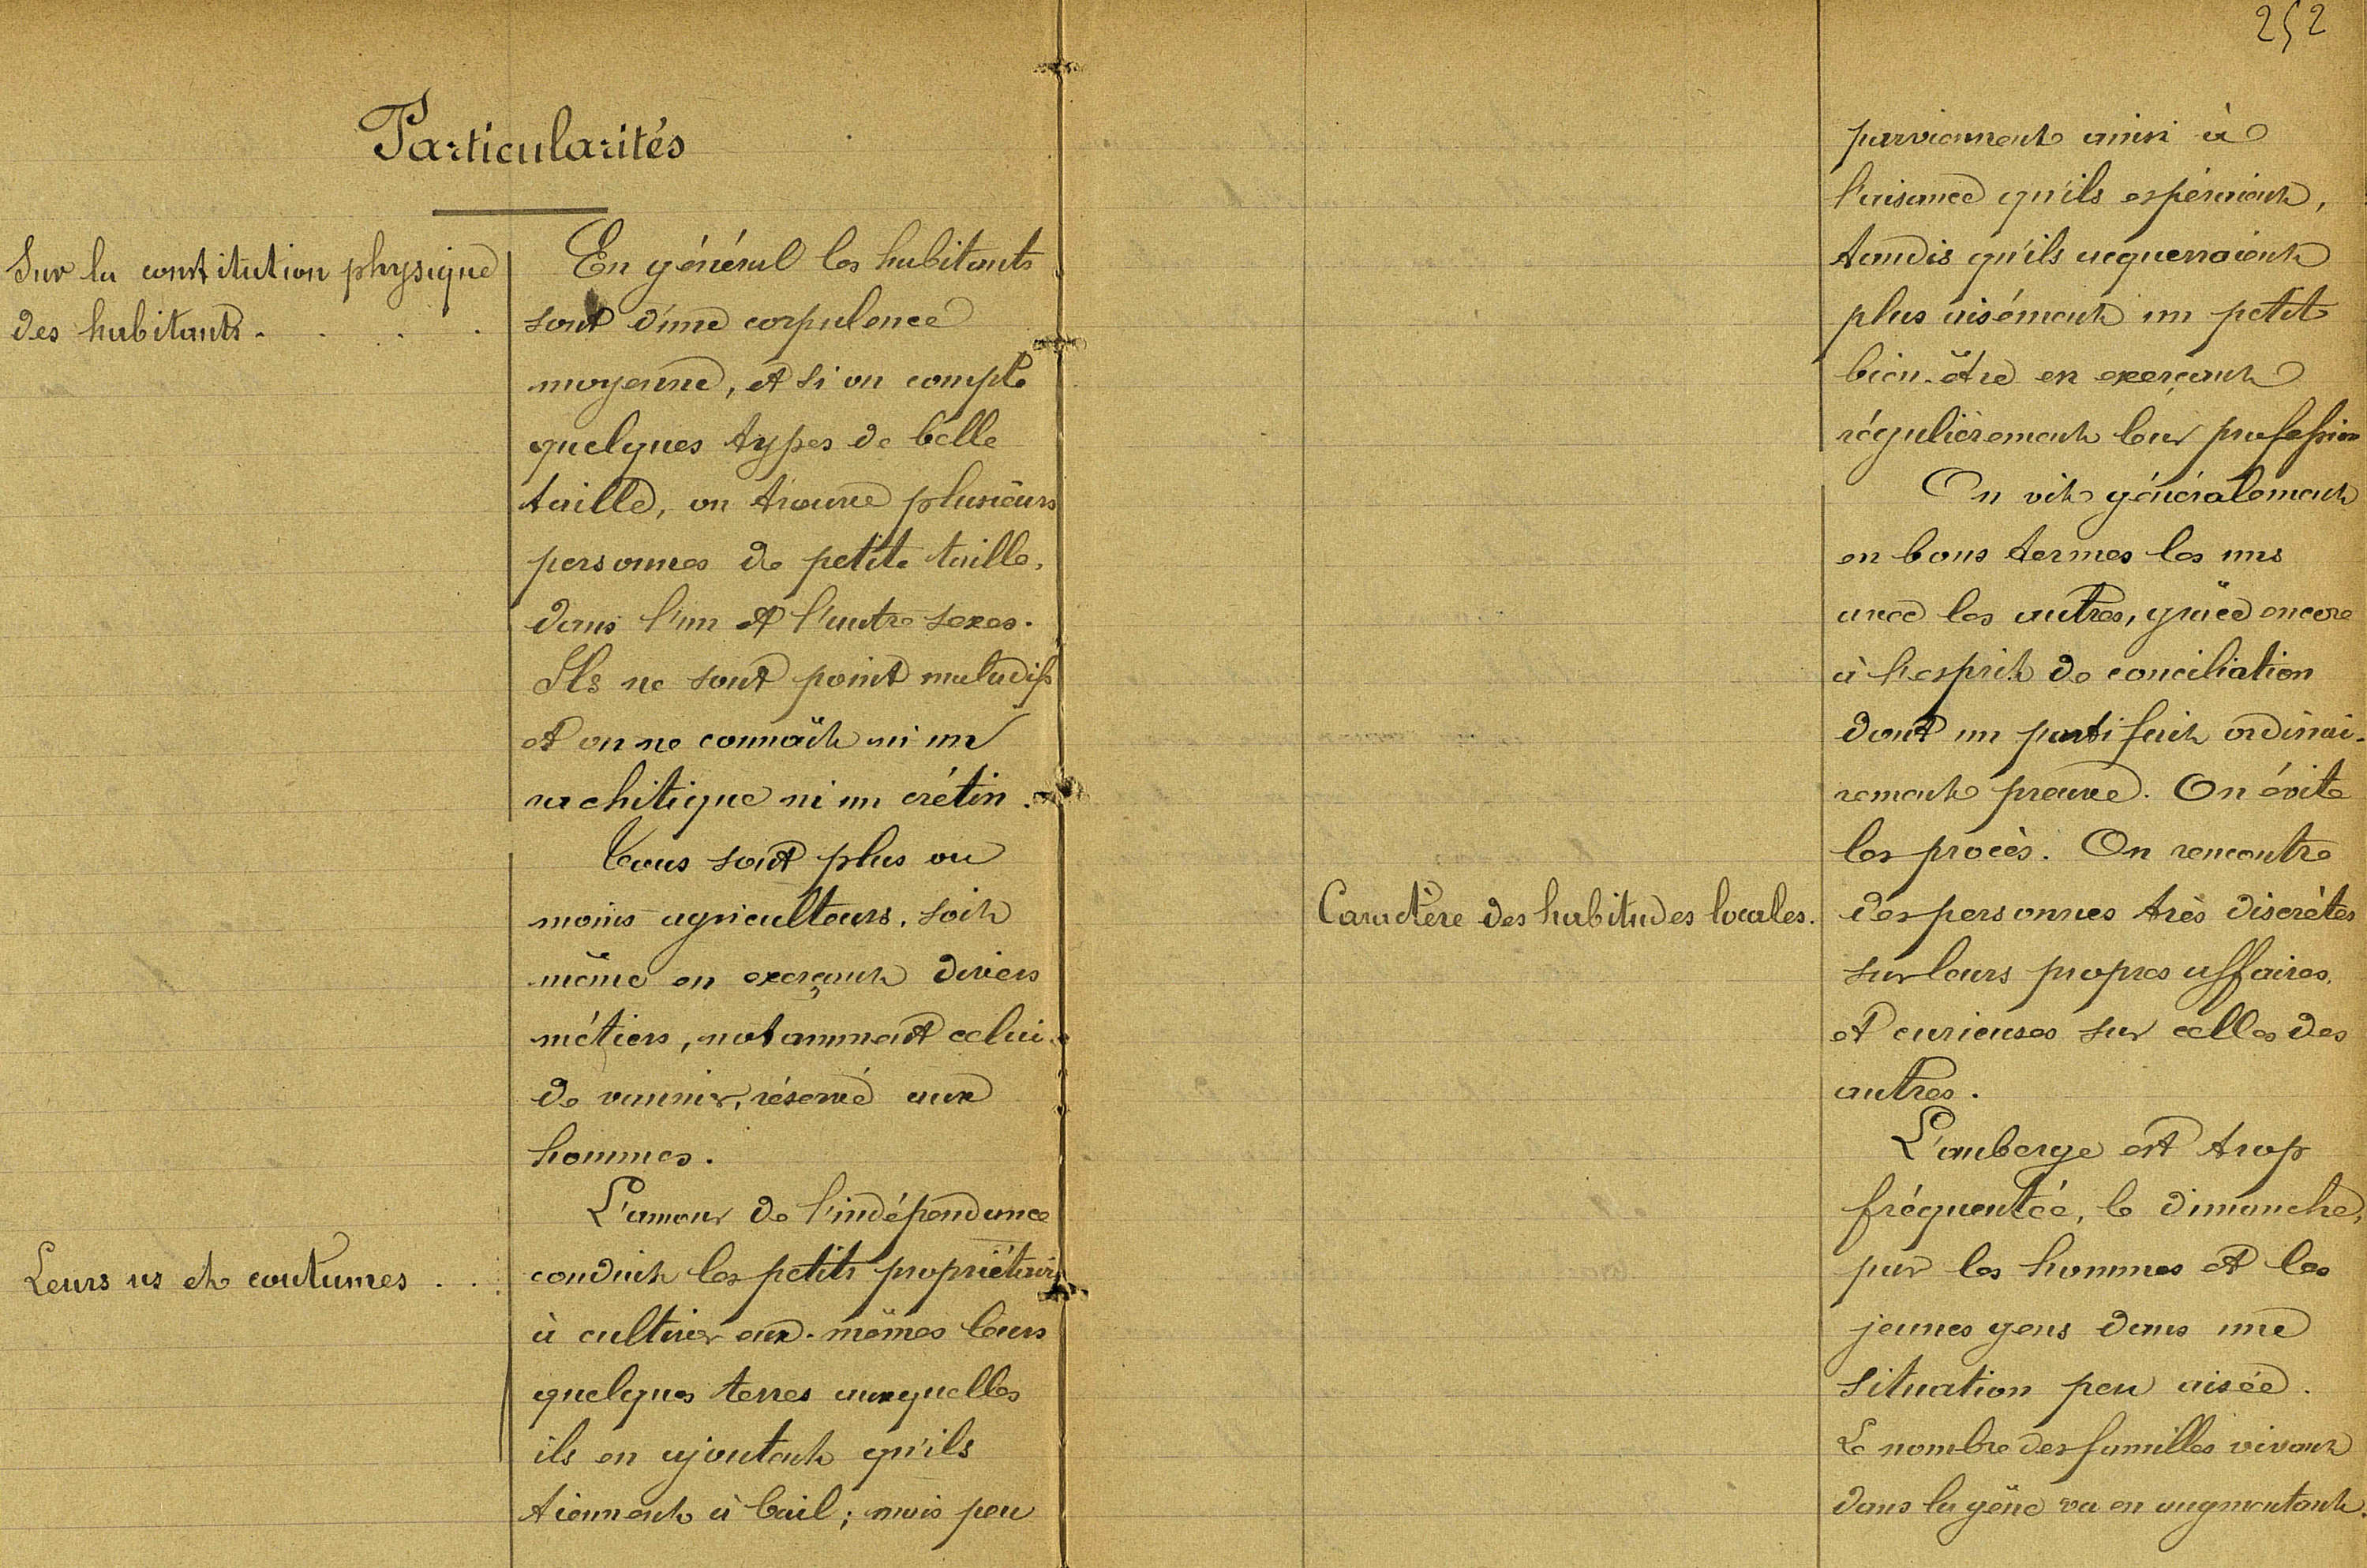 Particularités
Sur la constitution physique
des habitants. . . .
En général les habitants
sont d'une corpulence
moyenne, et si on compte
quelques types de belle
taille, on trouve plusieurs
personnes de petite taille,
dans l'un et l'autre sexes.
Ils ne sont point maladifs
et on ne connaît ni un
rachitique ni un crétin.
Tous sont plus ou
moins agriculteurs, soit
même en exerçant divers
métiers, notamment celui
de vannier, réservé aux
hommes.
Leurs us et coutumes . .
L'amour de l'indépendance
conduit les petits propriétaires
à cultiver eux-mêmes leurs
quelques terres auxquelles
ils en ajoutent qu'ils
tiennent à bail ; mais peu
252
parviennent ainsi à
l'aisance qu'ils espéraient,
tandis qu'ils acquerraient
plus aisément un petit
bien-être en exerçant
régulièrement leur profession
On vit généralement
en bons termes les uns
avec les autres, grâce encore
à l'esprit de conciliation
dont un parti fait ordinai-
rement preuve. On évite
les procès. On rencontre
Caractère des habitudes locales.
des personnes très discrètes
sur leurs propres affaires,
et curieuses sur celles des
autres.
L'auberge est trop
fréquentée, le dimanche,
par les hommes et les
jeunes gens dans une
situation peu aisée.
Le nombre des familles vivant
dans la gêne va en augmentant.